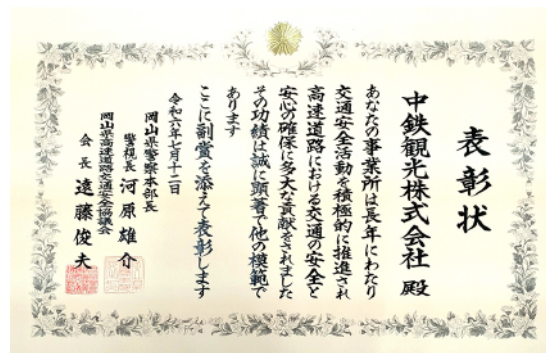 表彰状
中鉄観光株式会社 殿
あなたの事業所は長年にわたり
交通安全活動を積極的に推進され
高速道路における交通の安全と
安心の確保に多大な貢献をされました
その功績は誠に顕著で他の模範で
あります
ここに副賞を添えて表彰します
令和六年七月十二日
岡山県警察本部長
警視長 河原雄介
岡山県高速道路交通安全協議会
会長 遠藤俊夫